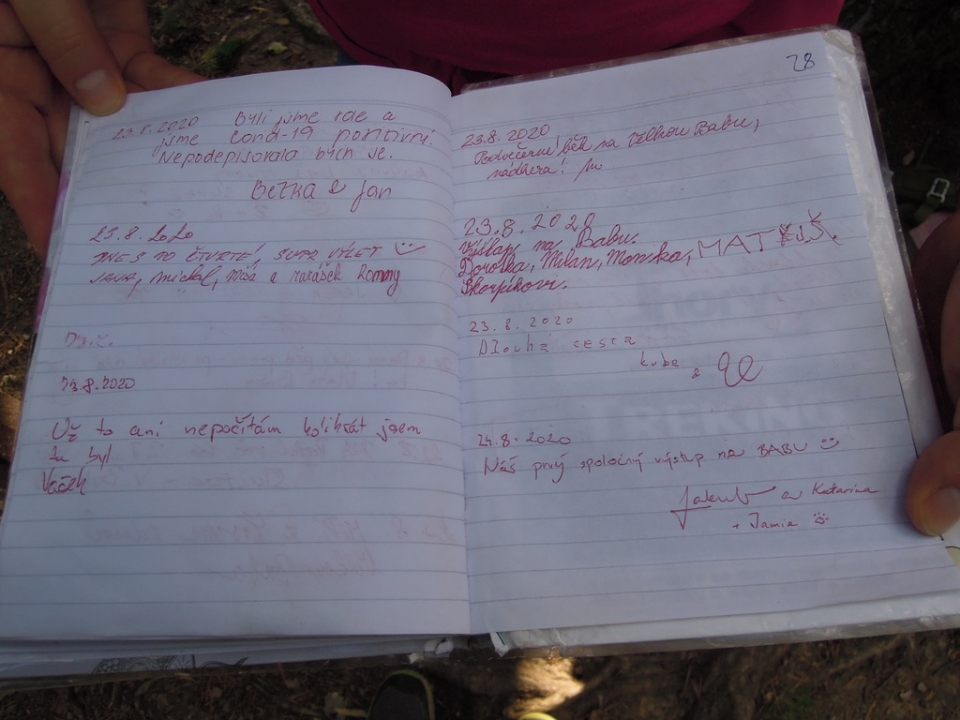 23.8.2020 Byli jsme zde a
jsme covid-19 pozitivní
Nepodepisovala bych se.
Betka & Jan
23.8.2020
DNES TO ČTVRTÉ, SUPR VÝLET
Michal, a Romny
23.8.2020
Už to ani nepočítám kolikrát jsem
tu byl
Vašek
28
23.8.2020
na Velkou Babu,
nádhera!
23.8.2020
Výšlap na Babu.
Dorotka, Milan, Monika, MATYÁŠ
Škorpíkovi.
23.8.2020
Dlouhá cesta
kuba
a
24.8.2020
Náš prvý spoločný výstup na BABU
Jakub a Katarína
+ Jamie